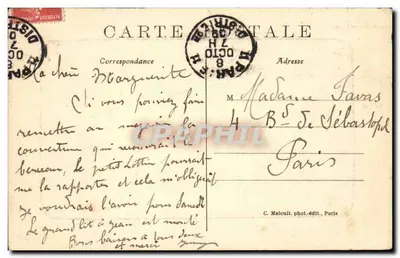 CARTE POSTALE
Correspondance
Adresse
Ma chère Marguerite
Si vous pouviez faire
remettre au magasin la
couverture qui recouvrait le
berceau, le petit Lotten pourrait
me la rapporter et cela m'obligerait
je voudrais l'avoir pour Samedi
Le grand lit à Jean est monté
Bons baisers à tous deux
et merci
M Madame Favas
4 Bd de Sébastopol
Paris
C. Malcuit, phot.-édit., Paris
CARTE PHILA